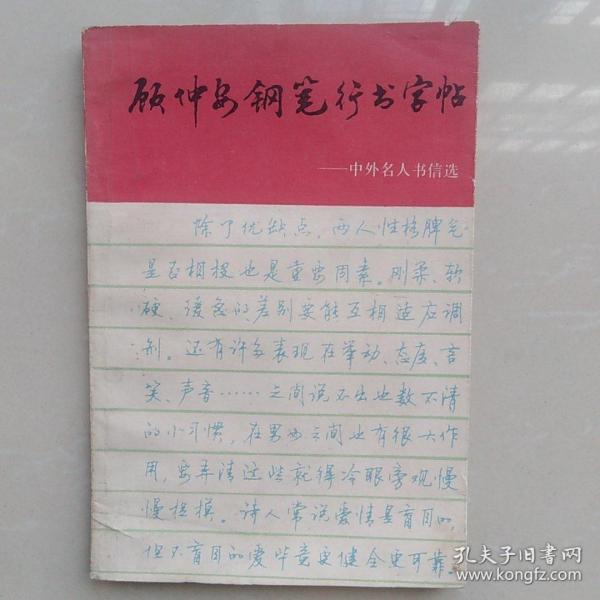 顾仲安钢笔行书字帖
——中外名人书信选
除了优缺点，两人性格脾气
是否相投也是重要因素。刚柔、软
硬、缓急的差别要能互相适应调
剂。还有许多表现在举动、态度、言
笑、声音……之间说不出也数不清
的小习惯，在男女之间也有很大作
用，要弄清这些就得冷眼旁观慢
慢揣摸。诗人常说爱情是盲目的，
但不盲目的爱毕竟要健全更可靠。
孔夫子旧书网
www.kongfz.com